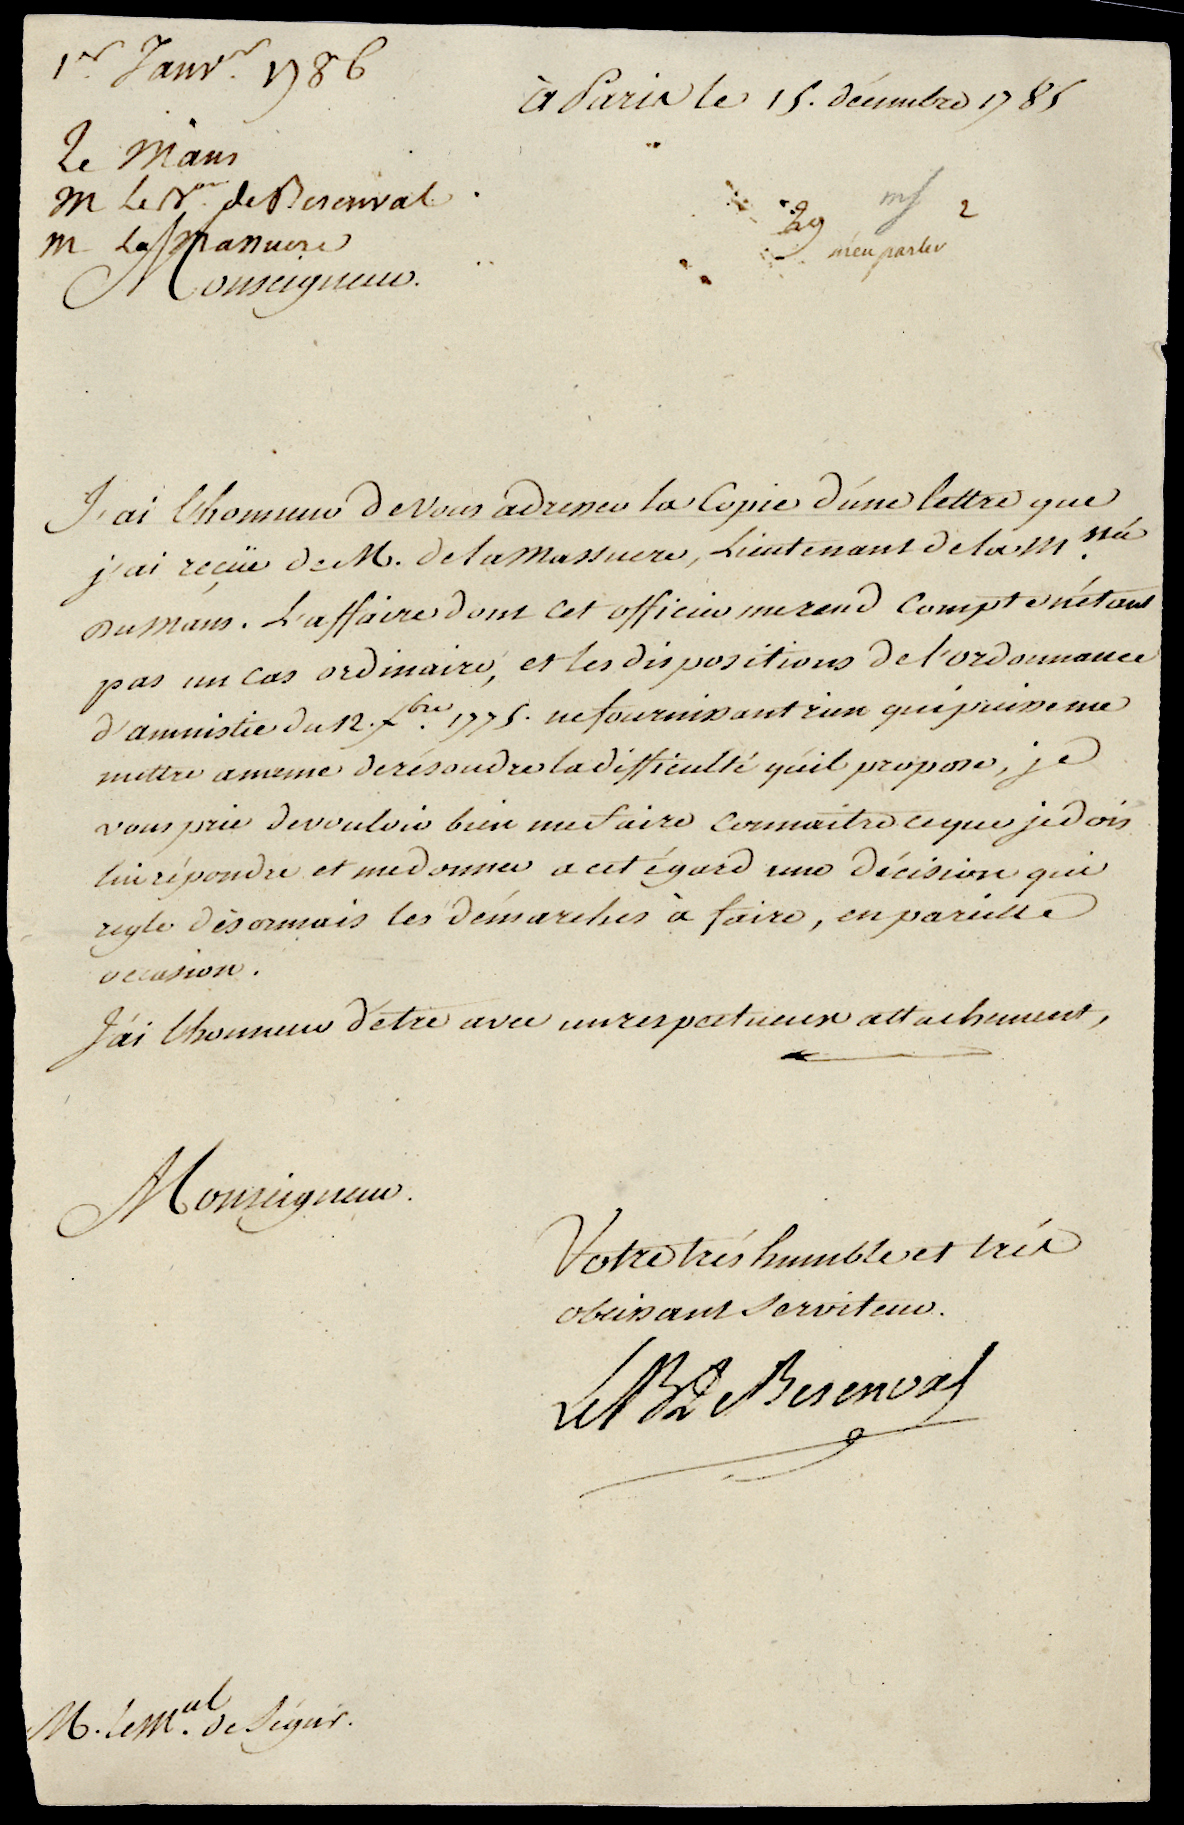 1er Janvr. 1786
à Paris le 15. décembre 1785
Le Mans
M le Bon. de Besenval
M la Massuere
29
2
m'en parler
Monseigneur.
J'ai l'honneur de vous adresser la Copie d'une lettre que
j'ai reçüe de M. de la Massuere, Lieutenant de la M.ssée
du Mans. L'affaire dont cet officier me rend Compte n'étant
pas un cas ordinaire, et les dispositions de l'ordonnance
d'amnistie du 12. Xbre. 1775. ne fournissant rien qui puisse me
mettre a meme de résoudre la difficulté qu'il propose, je
vous prie de vouloir bien me faire connaitre ce que je dois
lui répondre et me donner a cet égard une décision qui
regle désormais les démarches à faire, en pareille
occasion.
J'ai l'honneur d'etre avec un respectueux attachement,
Monseigneur.
Votre trés humble et trés
obeissant Serviteur.
Le B de Besenval
M. le M.al de Ségur.